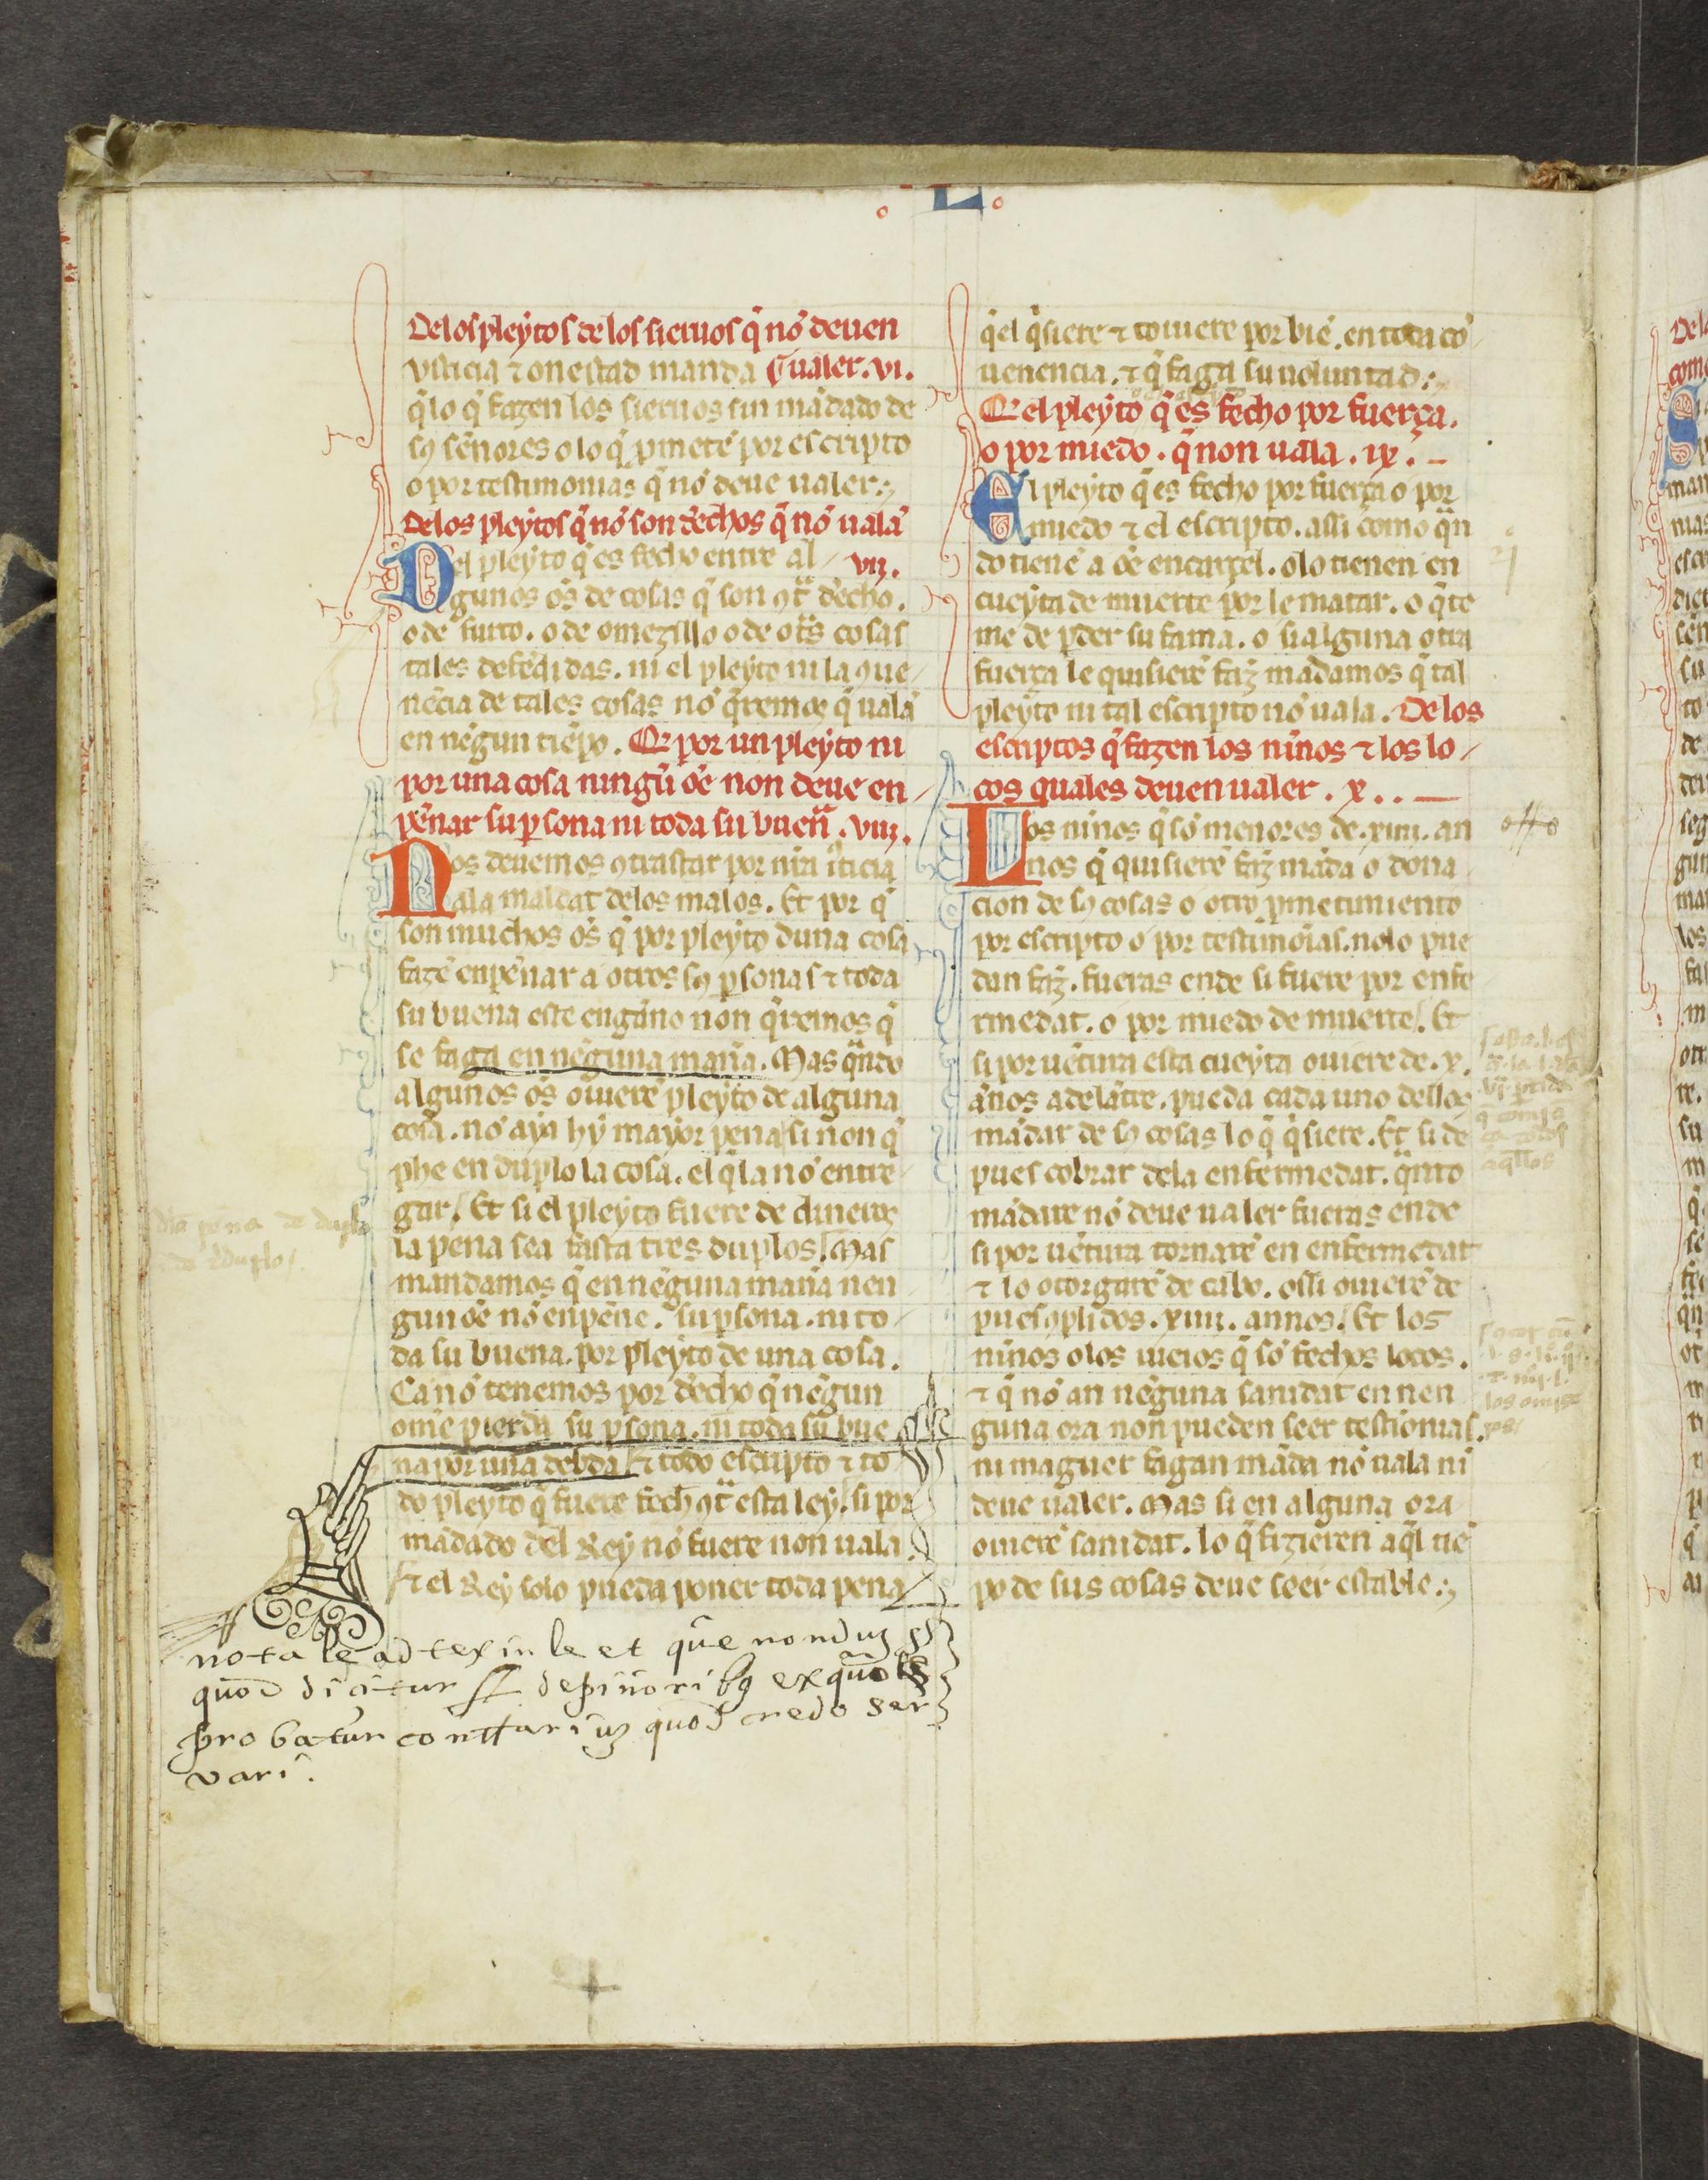 L
Delos pleytos de los sieruos q̄ nō deuen
Justicia ⁊ onestad manda Ualer. vi.
q̄ lo q̄ fazen los sieruos sin mādado de
sꝯ sēnores o lo q̄ ꝓmetē por escripto
o por testimonias q̄ nō deue ualer:;
Delos pleytos q̄ nō son dꝛechos q̄ nō ualā
Del pleyto q̄ es fecho entre al vii.
gunos oēs de cosas q̄ son ꝯtᵃ dꝛecho.
o de furto. o de omezillo o de otᵃs cosas
tales defēdidas. ni el pleyto ni la ꝯue
nēcia de tales cosas nō q̄remos q̄ ualā
en nēgun tiēpo. Q̄ por un pleyto ni
por una cosa ningū oē non deue en
pēnar su ꝑsona ni toda su buenᵃ. viii.
Nos deuemos ꝯtrastar por nrā iᵘticia
a la maldat delos malos. Et por q̄
son muchos oēs q̄ por pleyto duna cosa
fazē enpēnar a otros sꝯ ꝑsonas ⁊ toda
su buena este engāno non q̄remos q̄
se faga en nēguna manᵃ. Mas qᵃndo
algunos oēs ouierē pleyto de alguna
cosa. nō aya hy mayor pena si non q̄
pche en duplo la cosa. el q̄ la nō entre
gar. Et si el pleyto fuere de dineros
la pena sea fasta tres duplos. Mas
mandamos q̄ en nēguna manᵃ nen
gun oē nō enpēne. su ꝑsona. ni to
da su buena. por pleyto de una cosa.
Ca nō tenemos por dꝛecho q̄ nēgun
ome pierda su ꝑsona. ni toda su bue
na por una debda ⁊ todo escripto ⁊ to
do pleyto q̄ fuere fecħ ꝯtᵃ esta ley. si por
mādado del Rey nō fuere non uala.
⁊ el Rey solo pueda poner toda pena
q̄ el q̄siere ⁊ touiere por biē. en toda cō
uenencia. ⁊ q̄ faga su uoluntad:;
Q̄ el pleyto q̄ es fecho por fuerça.
o por miedo. q̄ non uala. ix.
El pleyto q̄ es fecho por fuerça o por
miedo ⁊ el escripto. assi como qᵃn
do tienē a oē en carçel. o lo tienen en
cueyta de muerte por le matar. o q̄ te
me de ꝑder su fama. o si alguna otra
fuerça le quisierē faz̄ mādamos q̄ tal
pleyto ni tal escripto nō uala. De los
escriptos q̄ fazen los nīnos ⁊ los lo
cos quales deuen ualer. x.
Los nīnos q̄ sō menores de. xiiii. an
nos q̄ quisierē faz̄ māda o dona
cion de sꝯ cosas o otro ꝓmetimiento
por escripto o por testimōias. nolo pue
dan faz̄. fueras ende si fuere por enfe
rmedat. o por miedo de muerte. Et
si por uētura esta cueyta ouiere de. x.
ānos adelātre. pueda cada uno dellos
mādar de sꝯ cosas lo q̄ q̄siere. Et si de
pues cobrar dela enfermedat. qᵃnto
mādare nō deue ualer fueras ende
si por uētura tornarē en enfermedat
⁊ lo otorgarē de cabo. o si ouierē de
pues ꝯplidos. xiiii. annos. Et los
nīnos o los uieios q̄ sō fechos locos.
⁊ q̄ nō an nēguna sanidat en nen
guna ora non pueden seer testīonias.
ni maguer fagan māda nō uala ni
deue ualer. Mas si en alguna ora
ouierē sanidat. lo q̄ fizieren aq̄l tiē
po de sus cosas deue seer estable:;
nota le ad tex in le et que nonduz
quod dicitur ff de pinoribꝯ ex quo
probatur contrariuz quod credo ser
vari.